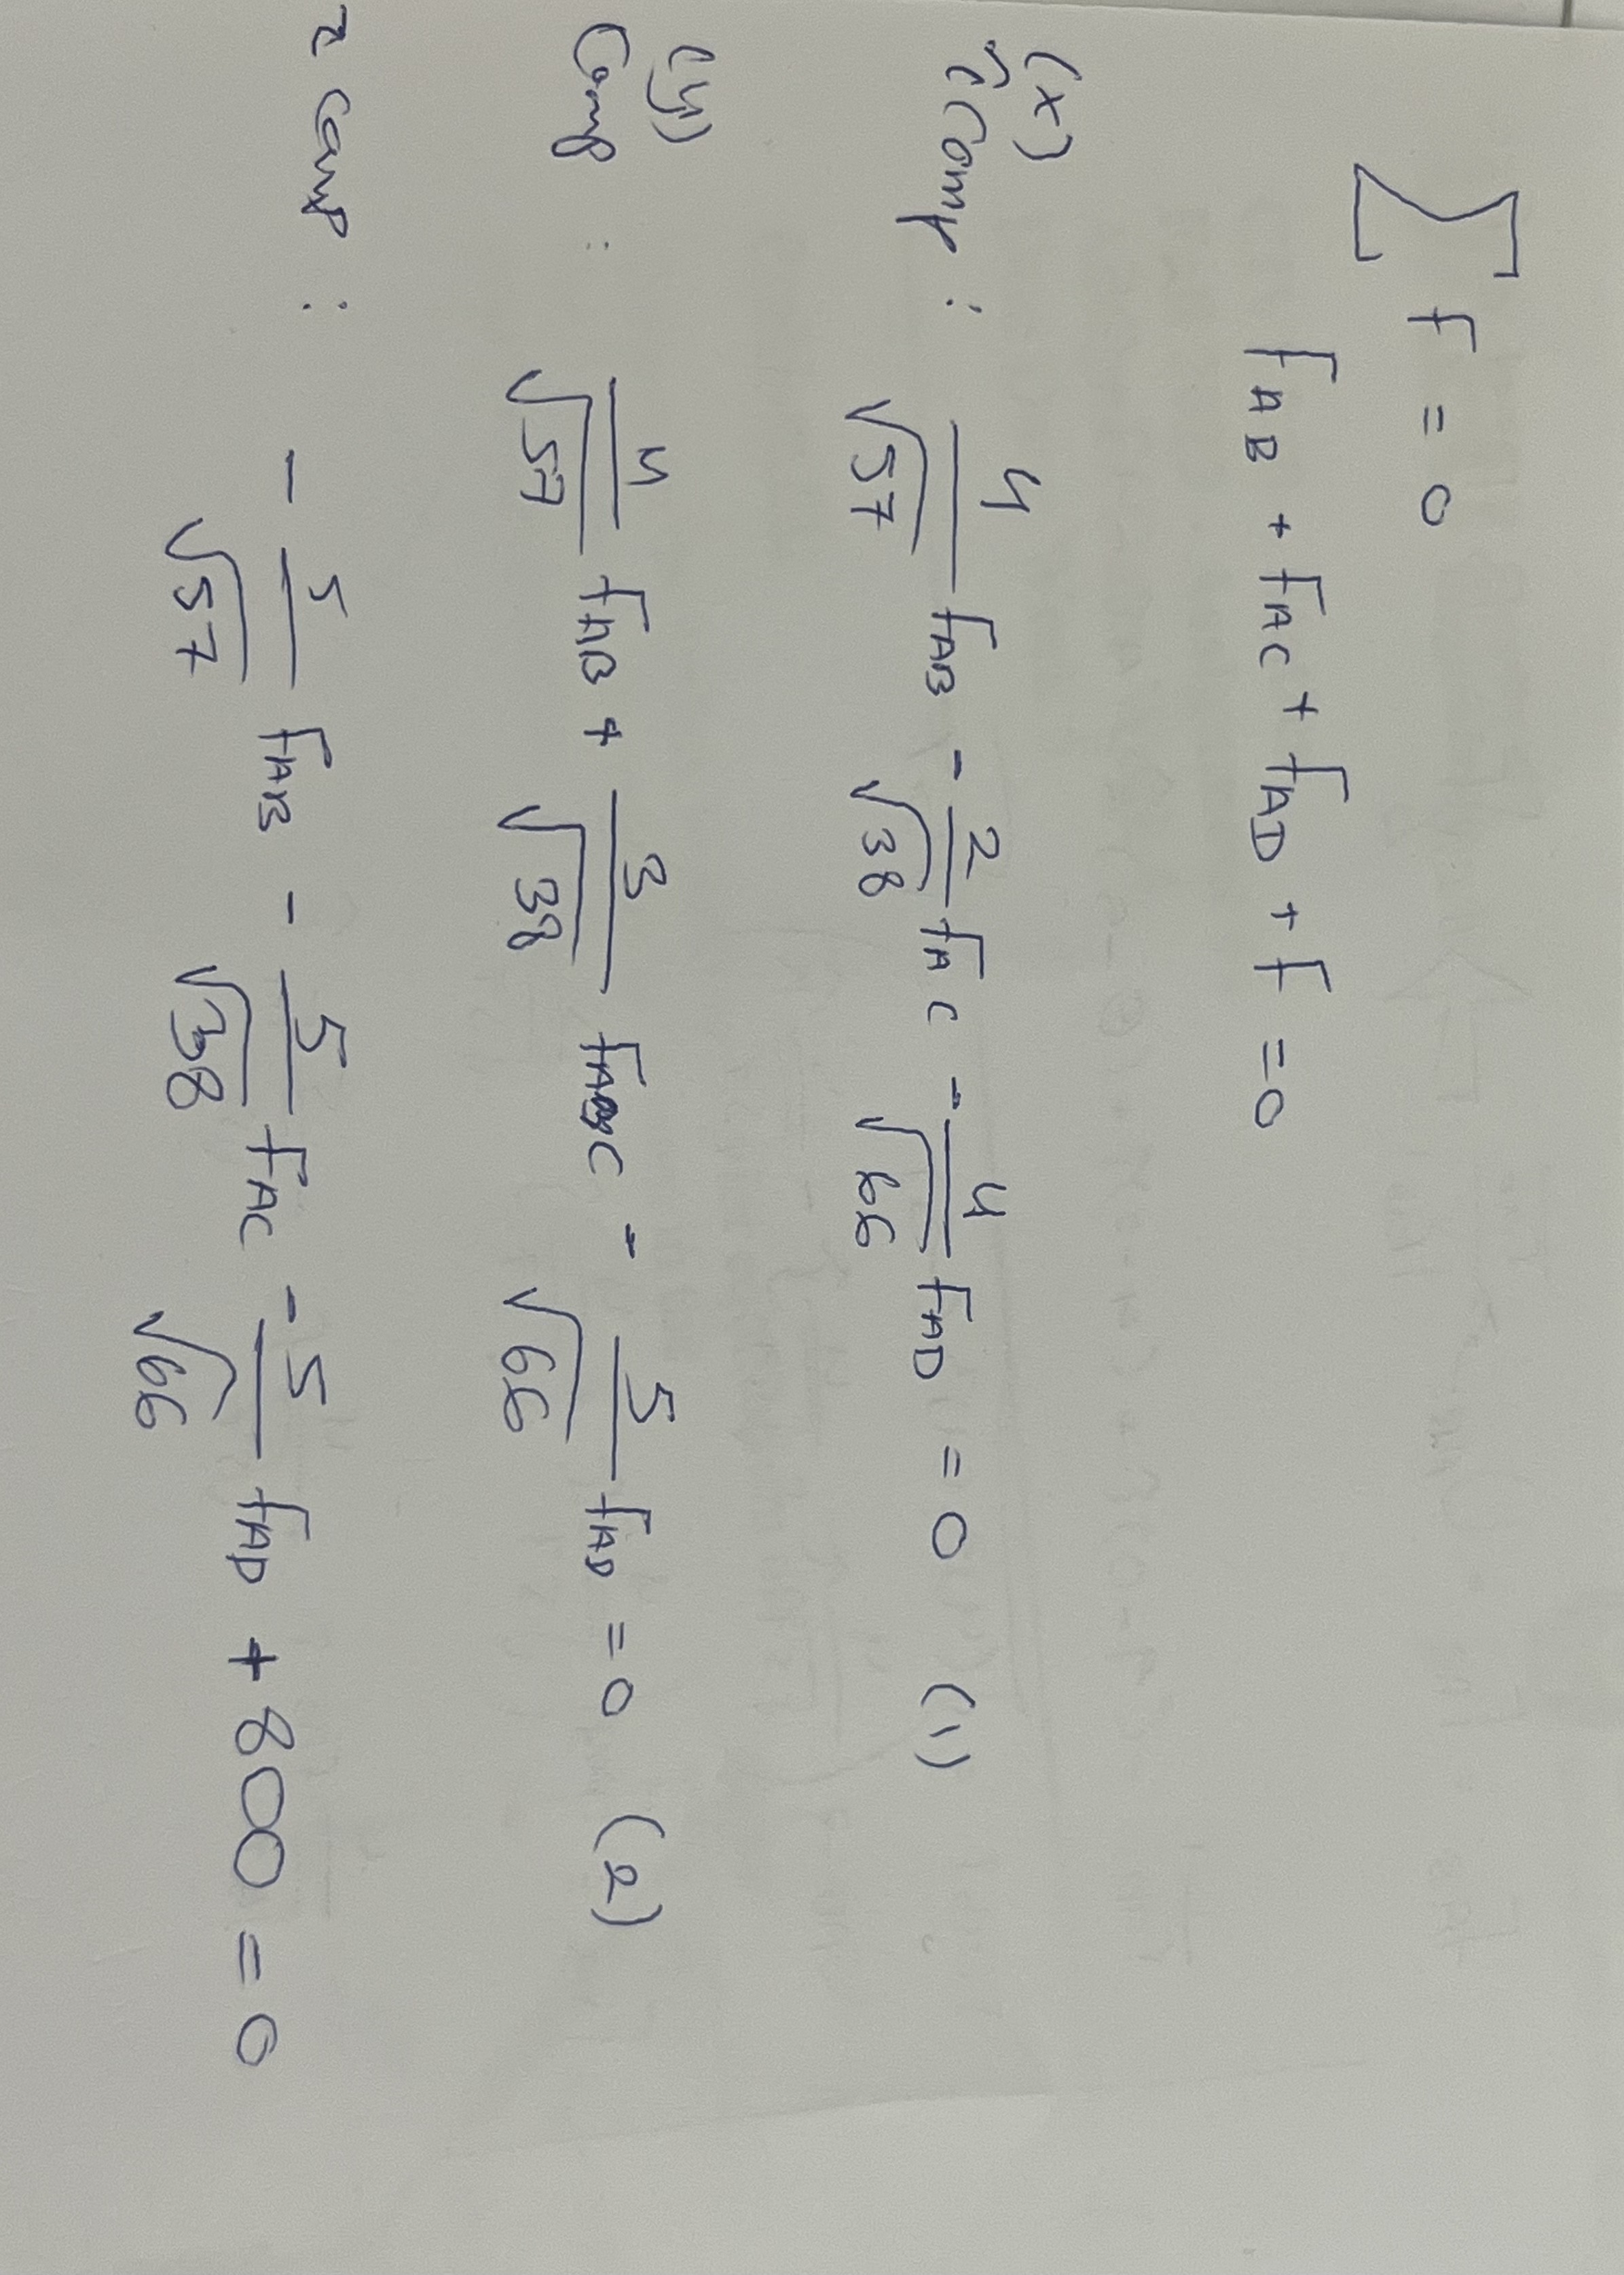 ∑ F = 0
F_AB + F_AC + F_AD + F = 0
(x)
Comp : 4/√57 F_AB - 2/√38 F_AC - 4/√66 F_AD = 0 (1)
(y)
Comp : 4/√57 F_AB + 3/√38 F_AC - 5/√66 F_AD = 0 (2)
z comp : - 5/√57 F_AB - 5/√38 F_AC - 5/√66 F_AD + 800 = 0